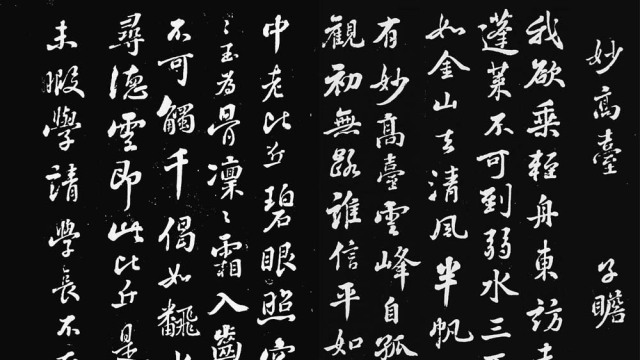 妙高臺 子瞻
我欲乘輕舟東訪
蓬萊不可到弱水三
如金山去清風半帆
有妙高臺雲峰自孤
觀初無路誰信平如
中老比丘碧眼照
〻玉為骨凜〻霜入齒
不可觸千偈如飜
尋德雲即此比丘是
未暇學請學長不